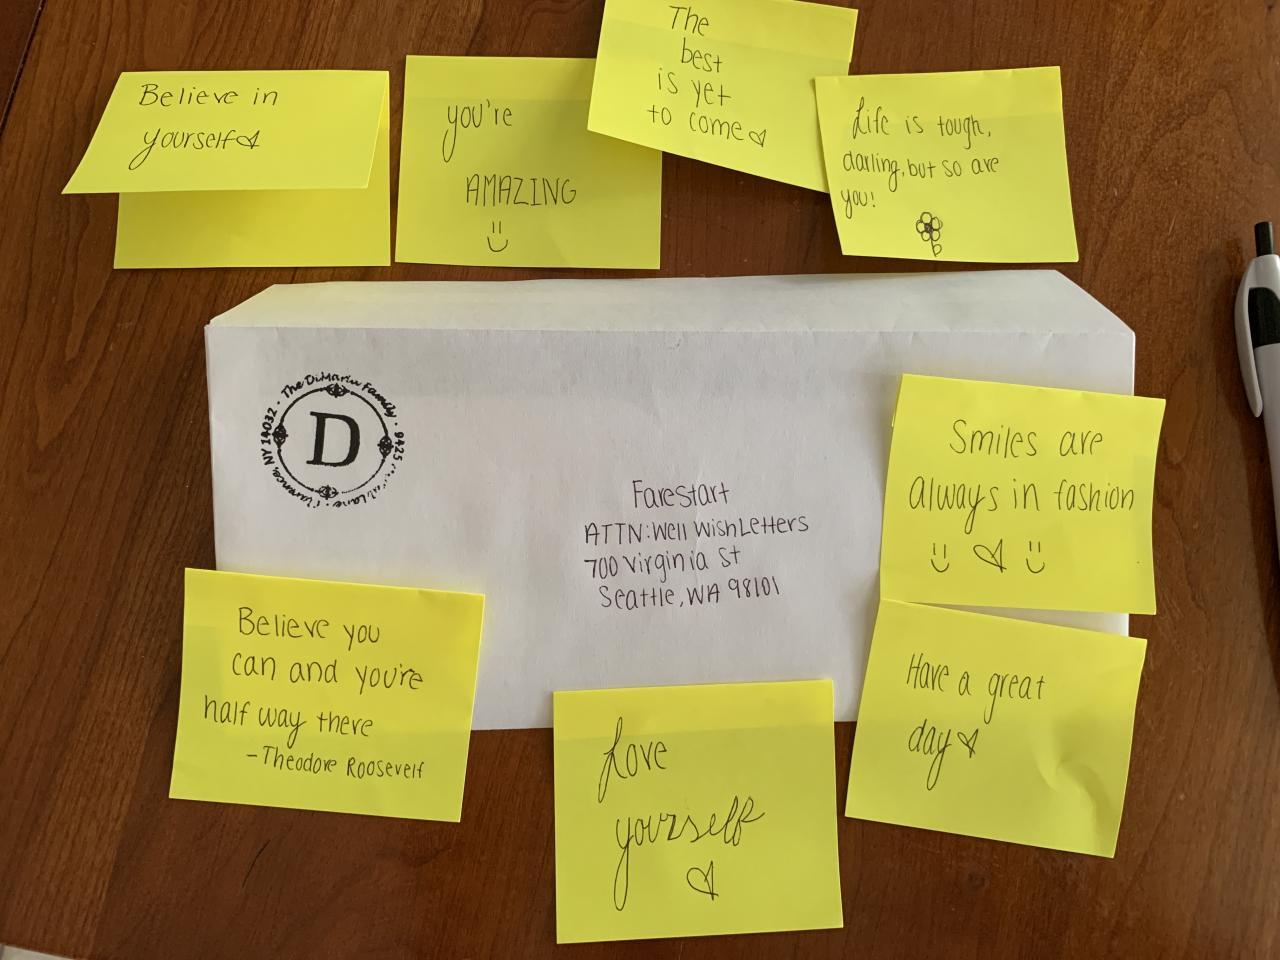 Believe in
yourself
you're
AMAZING
The
best
is yet
to come
Life is tough,
darling, but so are
you!
The DiMarin Family · 9425 Lane · Clarence, NY 14032 ·
D
FareStart
ATTN: Well Wish Letters
700 Virginia St
Seattle, WA 98101
Smiles are
always in fashion
Believe you
can and you're
half way there
-Theodore Roosevelt
Love
yourself
Have a great
day